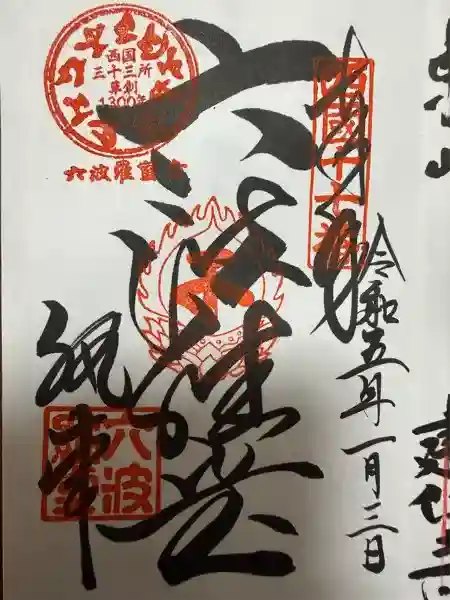 西国
三十三所
草創
1300年
六波羅蜜寺
西國十七番
令和五年一月三日
六波羅堂
執事
東山
建仁寺